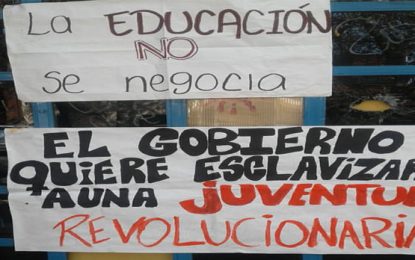 La EDUCACIÓN
NO
se negocia
EL GOBIERNO
QUIERE ESCLAVIZAR
A UNA JUVENTUD
REVOLUCIONARIA